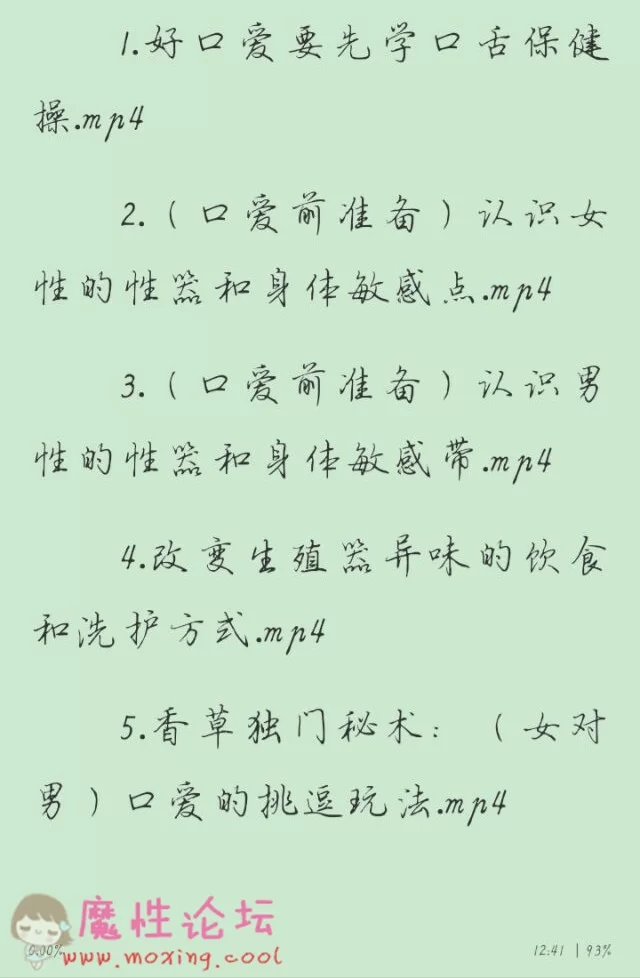 1.好口爱要先学口舌保健
操.mp4
2.（口爱前准备）认识女
性的性器和身体敏感点.mp4
3.（口爱前准备）认识男
性的性器和身体敏感带.mp4
4.改变生殖器异味的饮食
和洗护方式.mp4
5.香草独门秘术：（女对
男）口爱的挑逗玩法.mp4
魔性论坛
0.00%
www.moxing.cool
12:41 | 93%